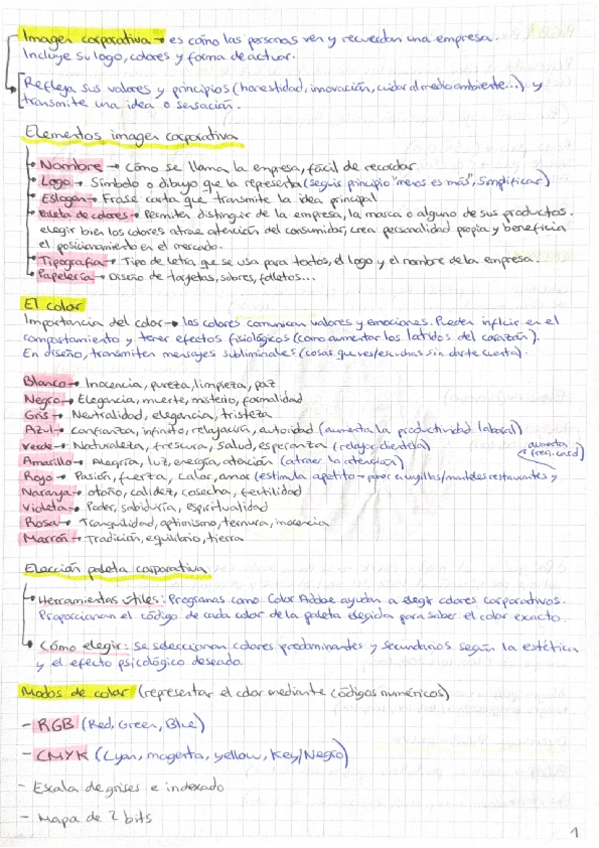 Imagen corporativa → es cómo las personas ven y recuerdan una empresa.
Incluye su logo, colores y forma de actuar.
Refleja sus valores y principios (honestidad, innovación, cuidar al medio ambiente...) y
transmite una idea o sensación.
Elementos imagen corporativa
Nombre → Cómo se llama la empresa, fácil de recordar
Logo → Símbolo o dibujo que la representa (seguir principio "menos es más", simplificar)
Eslogan → Frase corta que transmite la idea principal
Paleta de colores → Permiten distinguir de la empresa, la marca o alguno de sus productos.
elegir bien los colores atrae atención del consumidor, crea personalidad propia y beneficia
el posicionamiento en el mercado.
Tipografía → Tipo de letra que se usa para textos, el logo y el nombre de la empresa.
Papelería → Diseño de tarjetas, sobres, folletos...
El color
Importancia del color → los colores comunican valores y emociones. Pueden influir en el
comportamiento y tener efectos fisiológicos (como aumentar los latidos del corazón).
En diseño, transmiten mensajes subliminales (cosas que ves/escuchas sin darte cuenta).
Blanco → Inocencia, pureza, limpieza, paz
Negro → Elegancia, muerte, misterio, formalidad
Gris → Neutralidad, elegancia, tristeza
Azul → Confianza, infinito, relajación, autoridad (aumenta la productividad laboral)
Verde → Naturaleza, frescura, salud, esperanza (relajar clientela)
Amarillo → Alegría, luz, energía, atención (atraer la atención)
aumenta
frec. card
Rojo → Pasión, fuerza, calor, amor (estimula apetito → poner en vajillas/manteles restaurantes y
Naranja → otoño, calidez, cosecha, fertilidad
Violeta → Poder, sabiduría, espiritualidad
Rosa → Tranquilidad, optimismo, ternura, inocencia
Marrón → Tradición, equilibrio, tierra
Elección paleta corporativa
Herramientas útiles: Programas como Color Adobe ayudan a elegir colores corporativos.
Proporcionan el código de cada color de la paleta elegida para saber el color exacto.
Cómo elegir: se seleccionan colores predominantes y secundarios según la estética
y el efecto psicológico deseado.
Modos de color (representar el color mediante códigos numéricos)
- RGB (Red, Green, Blue)
- CMYK (Cyan, magenta, yellow, Key/Negro)
- Escala de grises e indexado
- Mapa de 2 bits
1